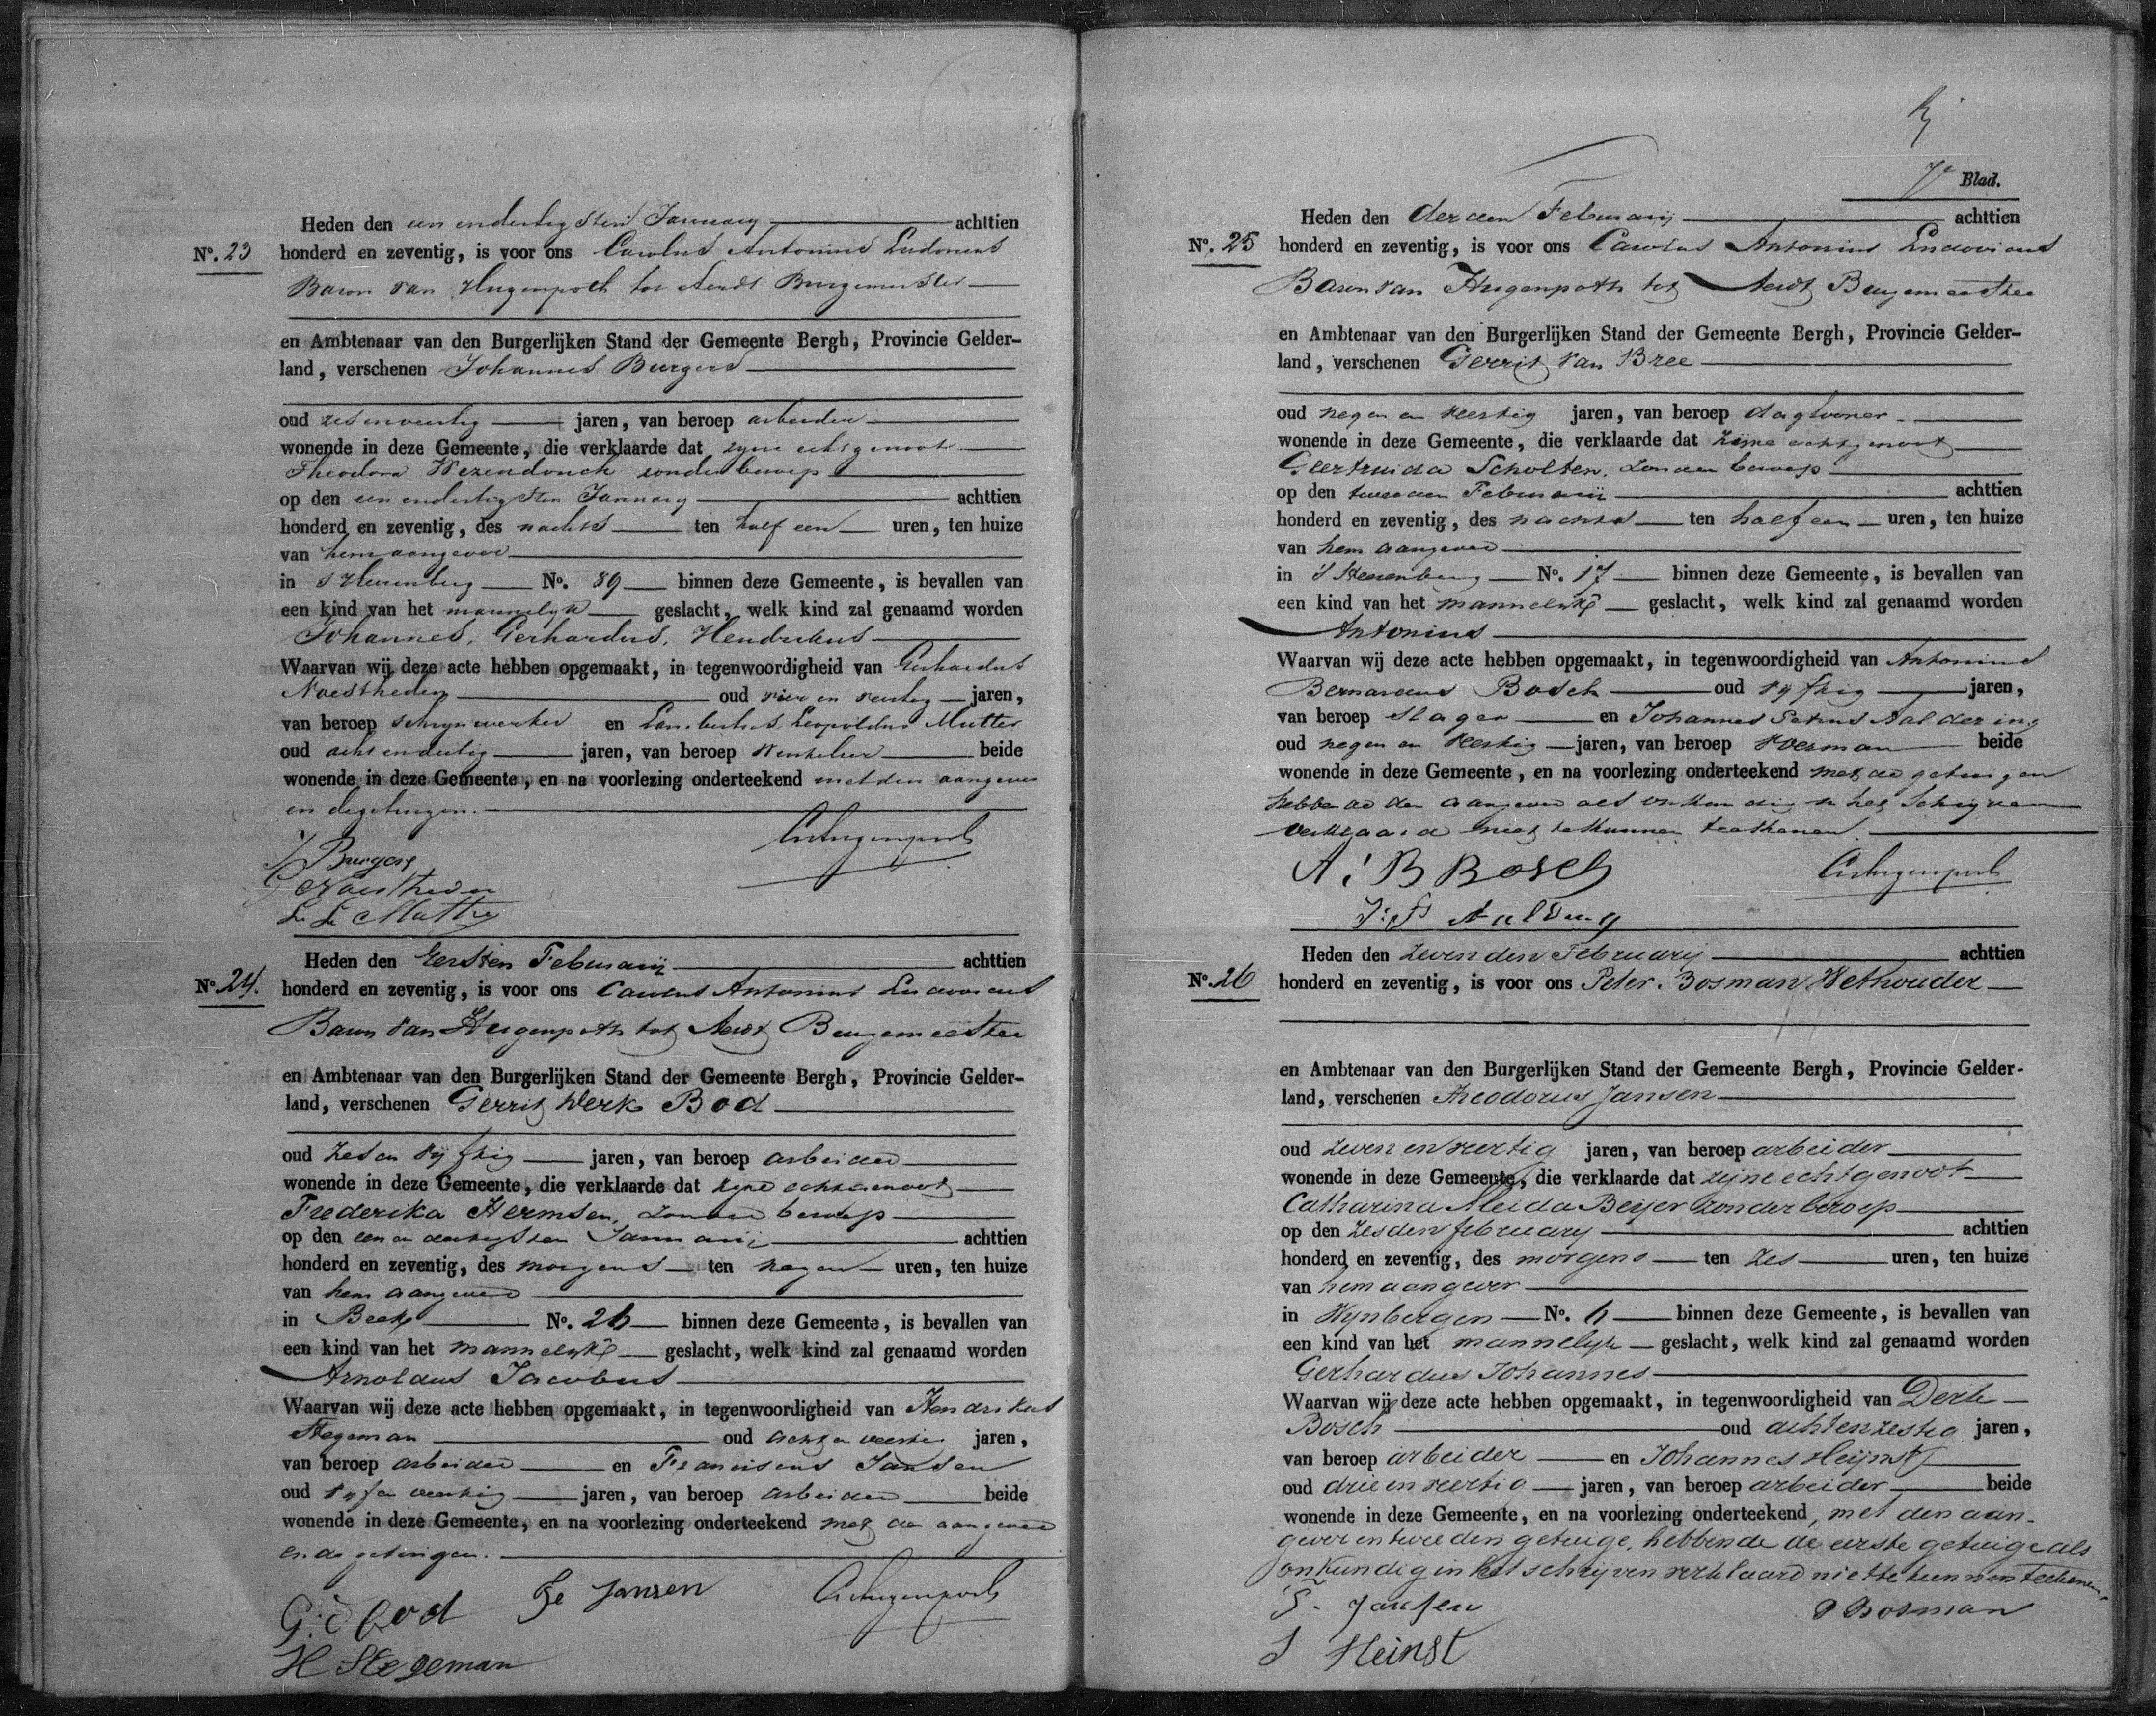 Heden den een endertigsten January achttien
No. 23 honderd en zeventig, is voor ons Carolus Antonius Ludovicus
Baron van Hugenpoth tot Aerdt Burgemeester
en Ambtenaar van den Burgerlijken Stand der Gemeente Bergh, Provincie Gelder-
land, verschenen Johannes Burgers
oud jaren, van beroep arbeider
wonende in deze Gemeente, die verklaarde dat zyne echtgenoote
Theodora Wezendonck zonder beroep
op den een endertigsten January achttien
honderd en zeventig, des nachts ten half een uren, ten huize
van hem aangever
in s'Heerenberg No. 89 binnen deze Gemeente, is bevallen van
een kind van het mannelyk geslacht, welk kind zal genaamd worden
Johannes, Gerhardus, Hendrikus
Waarvan wij deze acte hebben opgemaakt, in tegenwoordigheid van Gerhardus
Naestheden oud vier en jaren,
van beroep schrynwerker en Lambertus Leopoldus Mutter
oud acht endertig jaren, van beroep Winkelier beide
wonende in deze Gemeente, en na voorlezing onderteekend met den aangever
en de getuigen.
J Burgers
L L Mutter
Heden den Eersten Februarij achttien
No. 24. honderd en zeventig, is voor ons Carolus Antonius Ludovicus
Baron van Hugenpoth tot Aerdt Burgemeester
en Ambtenaar van den Burgerlijken Stand der Gemeente Bergh, Provincie Gelder-
land, verschenen Gerrit Derk Bod
oud zes en vyftig jaren, van beroep arbeider
wonende in deze Gemeente, die verklaarde dat zyne echtgenoot
Frederika Hermsen, zonder beroep
op den een en dertigsten Januarij achttien
honderd en zeventig, des morgens ten negen uren, ten huize
van hem aangever
in Beek No. 26 binnen deze Gemeente, is bevallen van
een kind van het mannelyke geslacht, welk kind zal genaamd worden
Arnoldus Jacobus
Waarvan wij deze acte hebben opgemaakt, in tegenwoordigheid van Hendrikus
Stegeman oud acht en veertig jaren,
van beroep arbeider en Franciscus Jansen
oud vyf en veertig jaren, van beroep arbeider beide
wonende in deze Gemeente, en na voorlezing onderteekend met den aangever
en de getuigen.
G: D Bod Fe Jansen
H Stegeman
7e Blad.
Heden den derden Februarij achttien
No. 25 honderd en zeventig, is voor ons Carolus Antonius Ludovicus
Baron van Hugenpoth tot Aerdt Burgemeester
en Ambtenaar van den Burgerlijken Stand der Gemeente Bergh, Provincie Gelder-
land, verschenen Gerrit van Bree
oud negen en veertig jaren, van beroep dagloner
wonende in deze Gemeente, die verklaarde dat zijne echtgenoot
Geertruida Scholten, zonder beroep
op den tweeden Februarij achttien
honderd en zeventig, des nachts ten half een uren, ten huize
van hem aangever
in 's Heerenberg No. 17 binnen deze Gemeente, is bevallen van
een kind van het mannelyke geslacht, welk kind zal genaamd worden
Antonius
Waarvan wij deze acte hebben opgemaakt, in tegenwoordigheid van Antonius
Bernardus Bosch oud vyftig jaren,
van beroep slager en Johannes Petrus Aaldering
oud negen en veertig jaren, van beroep voerman beide
wonende in deze Gemeente, en na voorlezing onderteekend met de getuigen
hebbende den aangever als onkundig in het schryven
verklaard niet te kunnen teekenen.
A: B Bosch
J: P Aaldering
Heden den zevenden February achttien
No. 26 honderd en zeventig, is voor ons Peter Bosman Wethouder
en Ambtenaar van den Burgerlijken Stand der Gemeente Bergh, Provincie Gelder-
land, verschenen Theodorus Jansen
oud zeven en veertig jaren, van beroep arbeider
wonende in deze Gemeente, die verklaarde dat zijne echtgenoot
Catharina Aleida Beijer zonder beroep
op den zesden february achttien
honderd en zeventig, des morgens ten zes uren, ten huize
van hem aangever
in Wynbergen No. 6 binnen deze Gemeente, is bevallen van
een kind van het mannelyk geslacht, welk kind zal genaamd worden
Gerhardus Johannes
Waarvan wij deze acte hebben opgemaakt, in tegenwoordigheid van Derk
Bosch oud achtenzestig jaren,
van beroep arbeider en Johannes Heijnst
oud drie en veertig jaren, van beroep arbeider beide
wonende in deze Gemeente, en na voorlezing onderteekend met den aan-
gever en tweeden getuige, hebbende de eerste getuige als
onkundig in het schrijven verklaard niet te kunnen teekenen
T. Jansen P Bosman
J Heinst